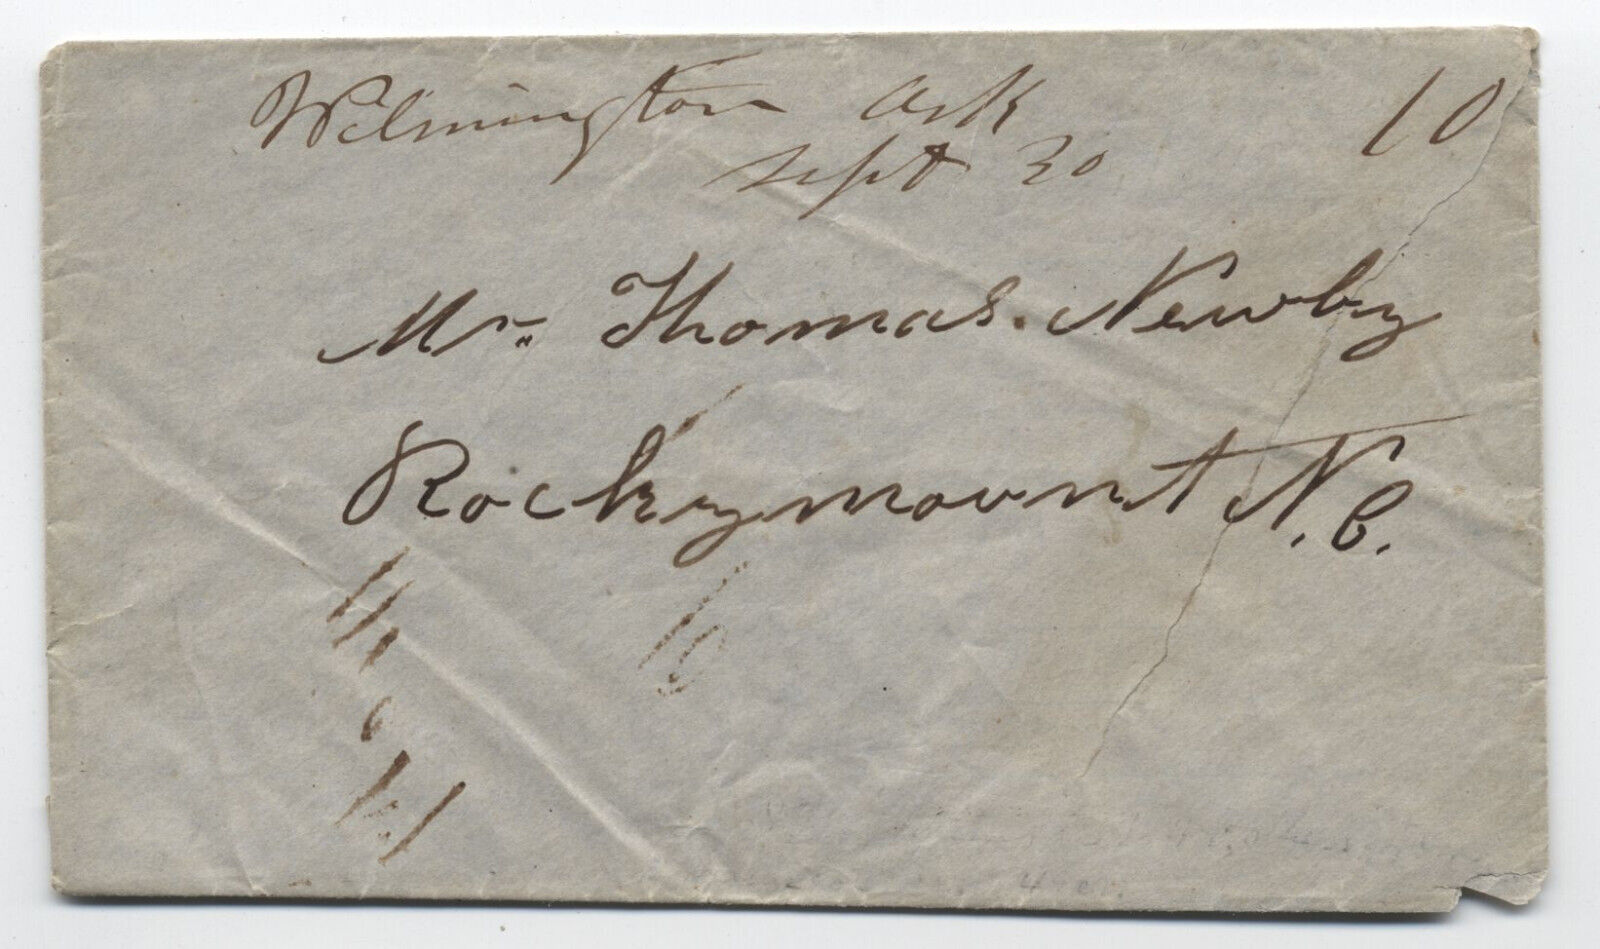 Wilmington Ark 10
Sept 30
Mr. Thomas. Newby
Rockymount N.C.
10